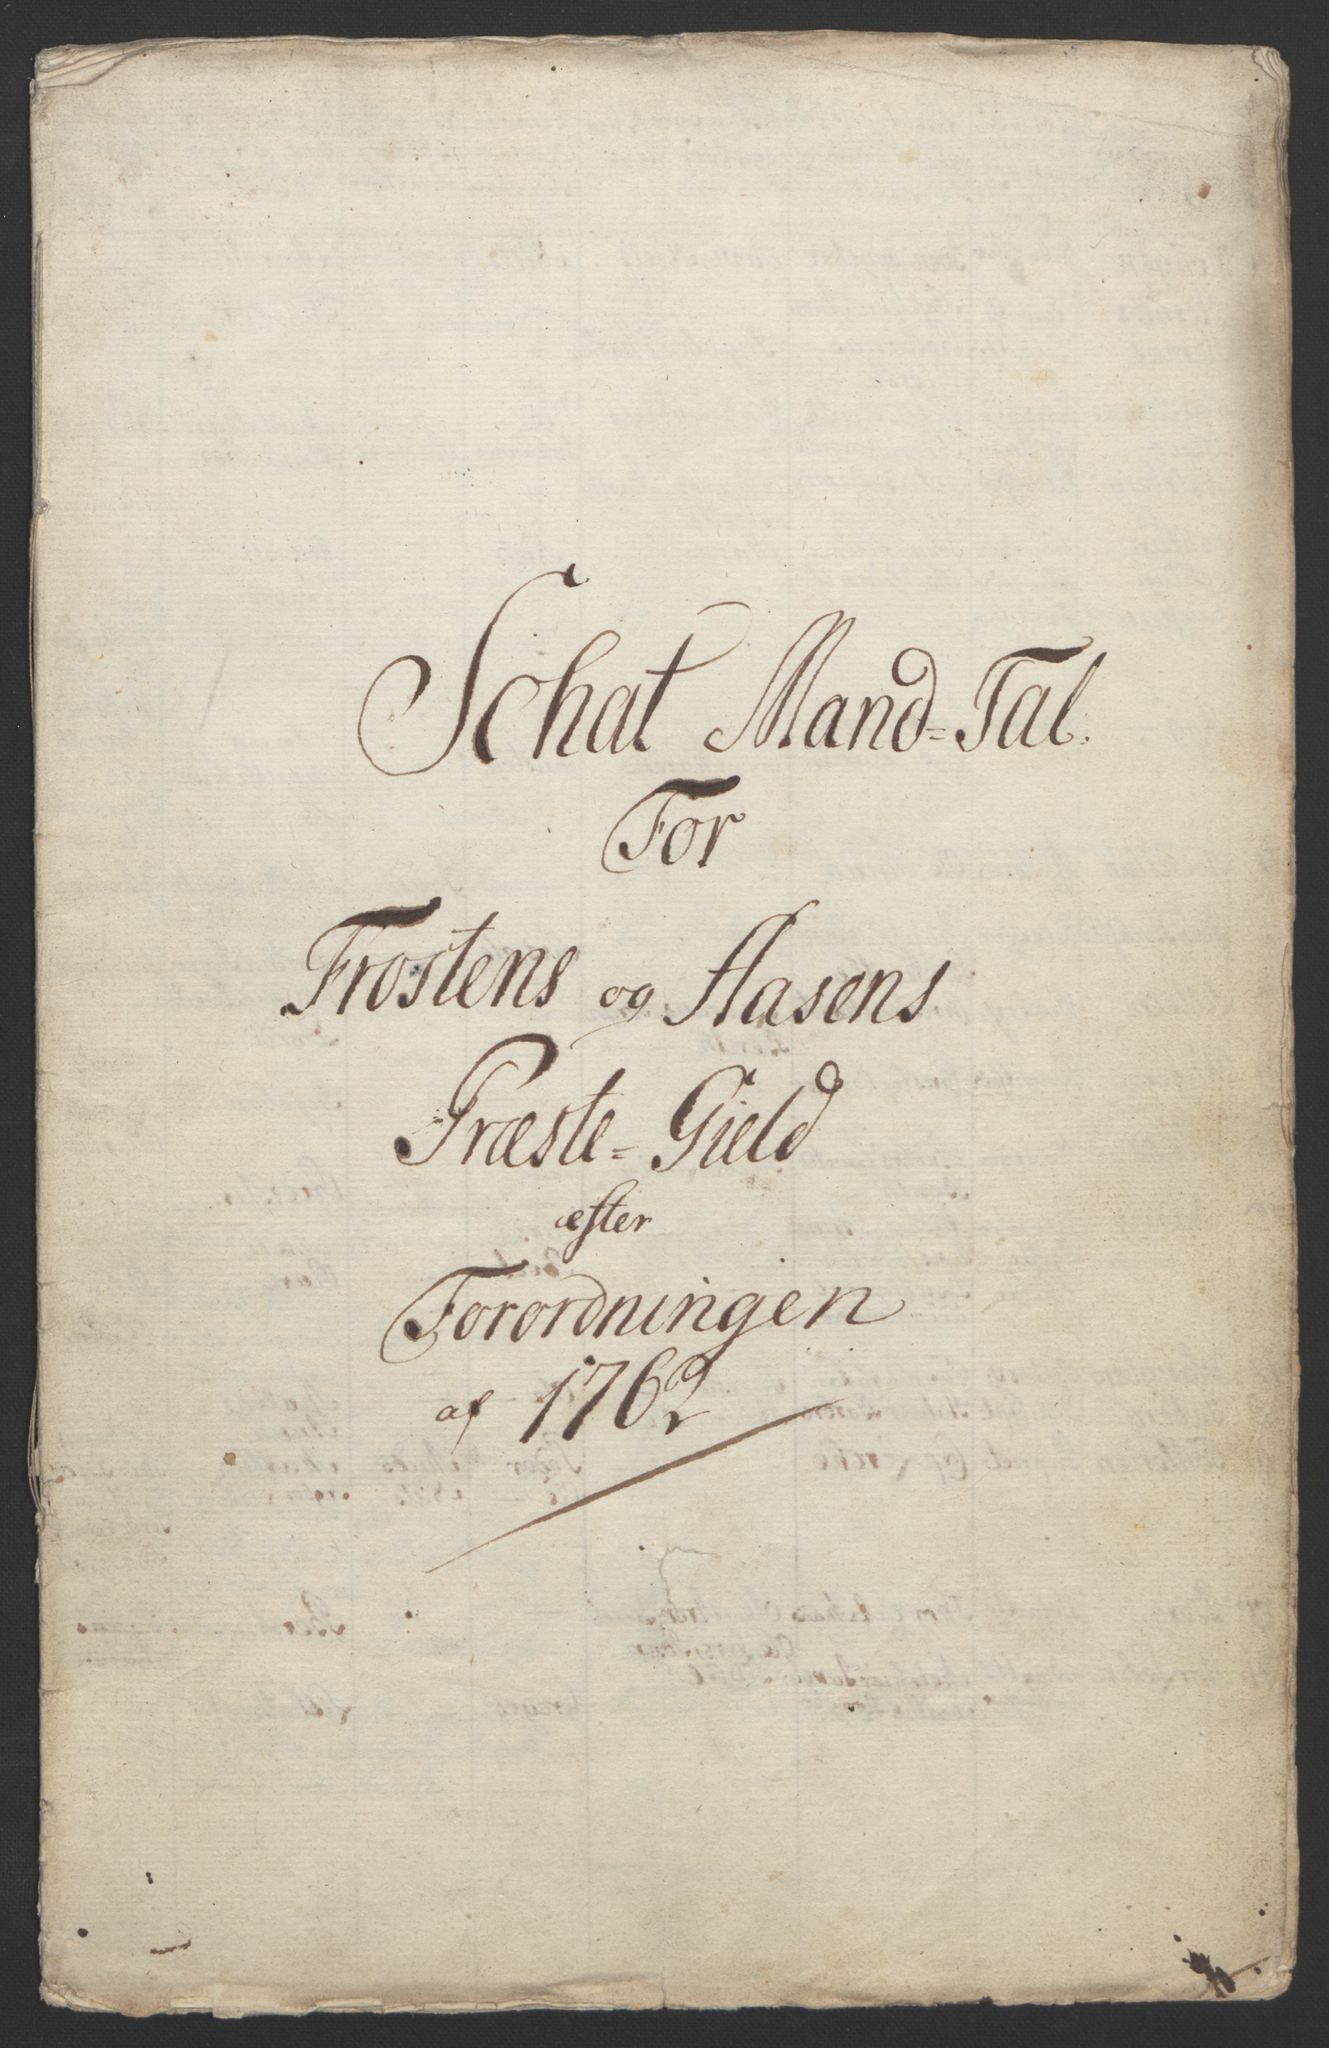 Schat Mand=Tal.
For
Frostens og Aasens
Præste=Gield
efter
Forordningen
af 1762